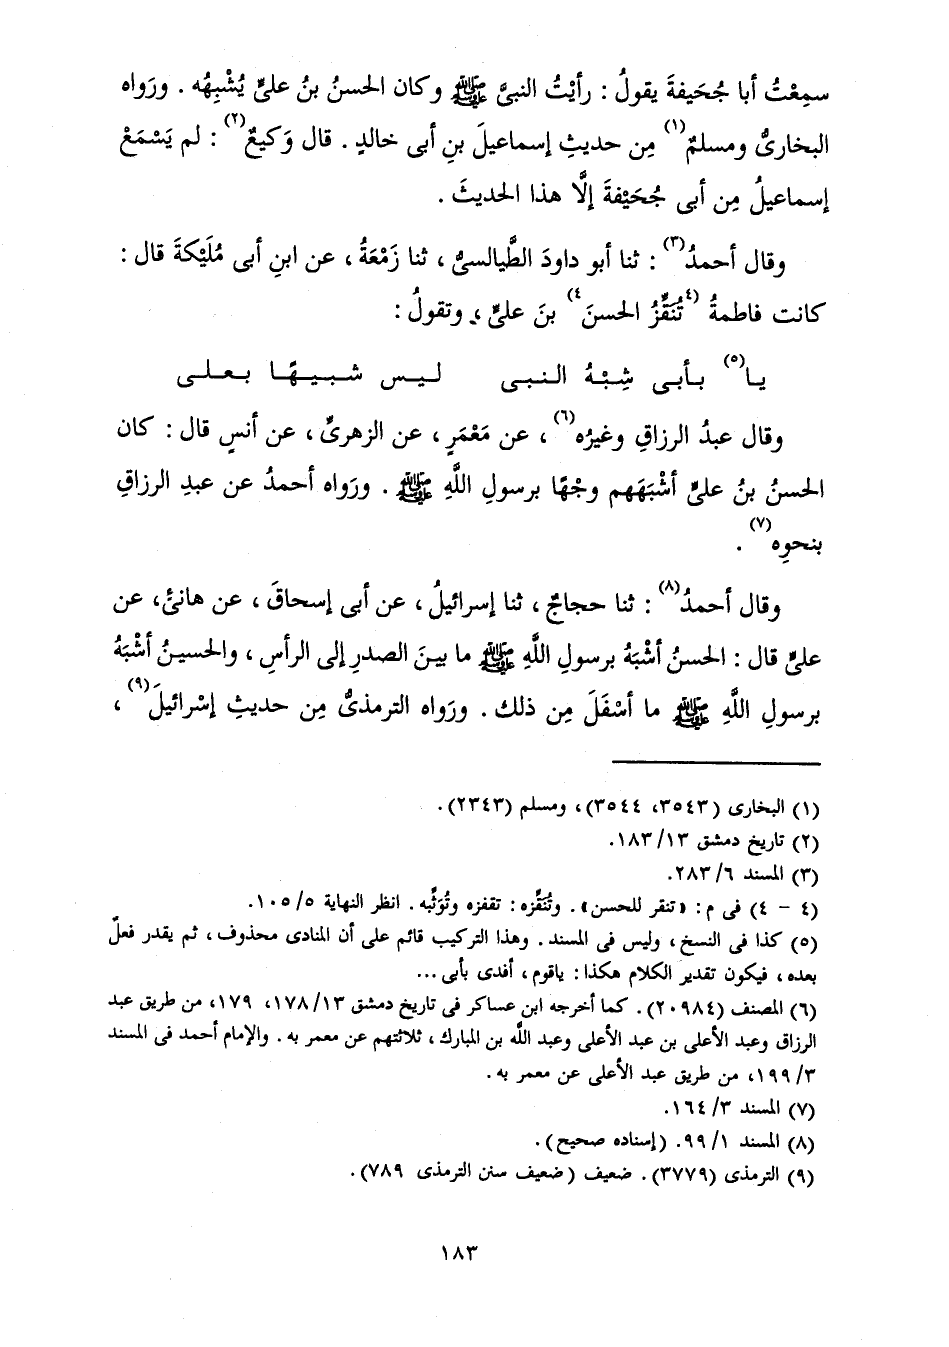 سمِعْتُ أبا جُحَيفةَ يقولُ : رأيْتُ النبىَّ ﷺ وكان الحسنُ بنُ علىٍّ يُشْبِهُه . ورَواه
البخارىُّ ومسلمٌ(١) مِن حديثِ إسماعيلَ بنِ أبى خالدٍ . قال وَكيعٌ(٢) : لم يَسْمَعْ
إسماعيلُ مِن أبى جُحَيْفةَ إلَّا هذا الحديثَ .
وقال أحمدُ(٣) : ثنا أبو داودَ الطَّيالسىُّ ، ثنا زَمْعَةُ ، عن ابنِ أبى مُلَيْكةَ قال :
كانت فاطمةُ (٤تُنَقِّزُ الحسنَ٤) بنَ علىٍّ ، وتقولُ :
يا(٥) بأبى شِبْهُ النبى ليس شبيهًا بعلى
وقال عبدُ الرزاقِ وغيرُه(٦) ، عن مَعْمَرٍ ، عن الزهرىِّ ، عن أنسٍ قال : كان
الحسنُ بنُ علىٍّ أشْبَهَهم وجْهًا برسولِ اللَّهِ ﷺ . ورَواه أحمدُ عن عبدِ الرزاقِ
بنحوِه(٧) .
وقال أحمدُ(٨) : ثنا حجاجٌ ، ثنا إسرائيلُ ، عن أبى إسحاقَ ، عن هانئٍ، عن
علىٍّ قال : الحسنُ أشْبَهُ برسولِ اللَّهِ ﷺ ما بينَ الصدرِ إلى الرأسِ ، والحسينُ أشْبَهُ
برسولِ اللَّهِ ﷺ ما أسْفَلَ مِن ذلك . ورَواه الترمذىُّ مِن حديثِ إسْرائيلَ(٩) ،
(١) البخارى (٣٥٤٣، ٣٥٤٤)، ومسلم (٢٣٤٣).
(٢) تاريخ دمشق ١٣/ ١٨٣.
(٣) المسند ٦/ ٢٨٣.
(٤ - ٤) فى م : «تنقر للحسن» . وتُنَقِّزه : تقفزه وتُوَثِّبه . انظر النهاية ٥/ ١٠٥.
(٥) كذا فى النسخ ، وليس فى المسند . وهذا التركيب قائم على أن المنادى محذوف ، ثم يقدر فعلٌ
بعده ، فيكون تقدير الكلام هكذا : ياقوم ، أفدى بأبى ...
(٦) المصنف (٢٠٩٨٤). كما أخرجه ابن عساكر فى تاريخ دمشق ١٣/ ١٧٨، ١٧٩، من طريق عبد
الرزاق وعبد الأعلى بن عبد الأعلى وعبد اللَّه بن المبارك ، ثلاثتهم عن معمر به . والإمام أحمد فى المسند
٣/ ١٩٩، من طريق عبد الأعلى عن معمر به .
(٧) المسند ٣/ ١٦٤.
(٨) المسند ١/ ٩٩. (إسناده صحيح).
(٩) الترمذى (٣٧٧٩). ضعيف (ضعيف سنن الترمذى ٧٨٩).
١٨٣